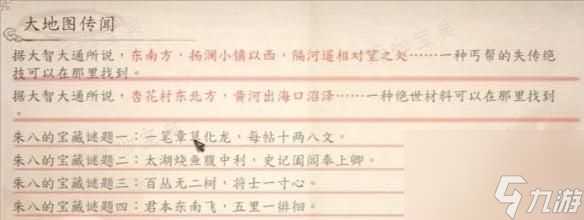 大地图传闻
据大智大通所说，东南方·扬澜小镇以西，隔河遥相对望之处……一种丐帮的失传绝
技可以在那里找到。
据大智大通所说，杏花村东北方，黄河出海口沼泽……一种绝世材料可以在那里找到
。
朱八的宝藏谜题一：一笔章草化龙，每帖十两八文。
朱八的宝藏谜题二：太湖烧鱼腹中利，史记阖闾奉上卿。
朱八的宝藏谜题三：百丛无二树，将士一寸心。
朱八的宝藏谜题四：君本东南飞，五里一徘徊。
九游